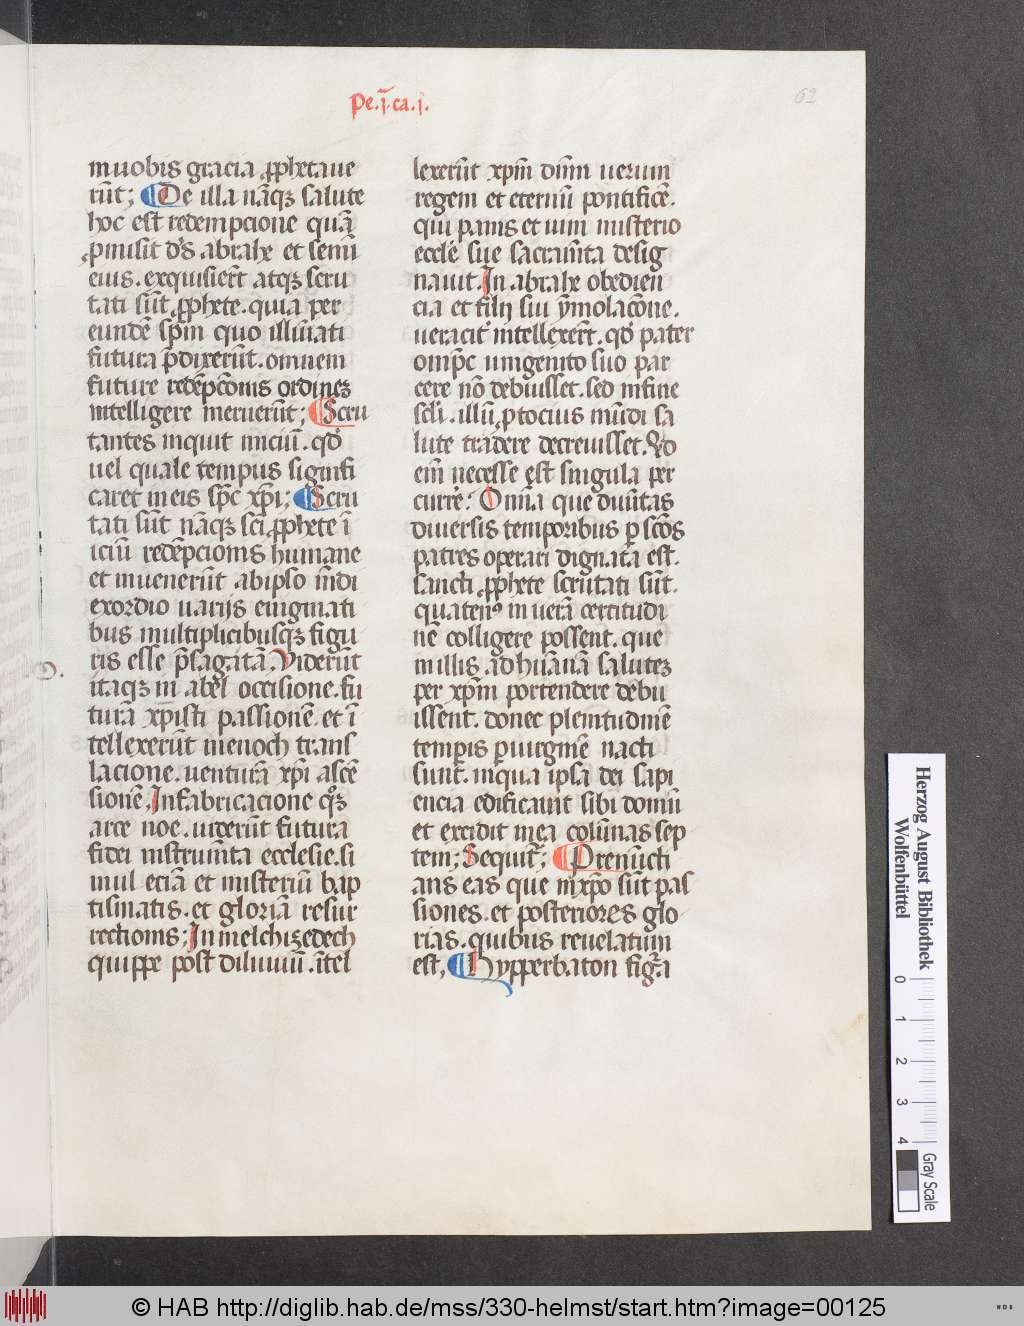 Pe.j. ca.j.
62
in uobis gracia ꝓphetaue
rūt; De illa nāqꝫ salute
hoc est redempcione quā
ꝓmisit dʼs abrahe et semī
eius. exquisierʼt atqꝫ scru
tati sūt ꝓphete. quia per
eundē spm̄ quo illūīati
futura p̄dixerūt. omnem
future redēpcōnis ordinē
intelligere meruerūt; Scru
tantes inquit iniciū. qđ
uel quale tempus signifi
caret in eis spc̄ xp̄i; Scru
tati sūt nāqꝫ sc̄i ꝓphete ī
iciū redēpcionis humane
et inuenerūt ab ipso mūdi
exordio uarijs enigmati
bus multiplicibusqꝫ figu
ris esse p̄sagātā. Viderūt
itaqꝫ in abel occisione. fu
turā xp̄isti passionē. et ī
tellexerūt in enoch trans
lacione. uenturā xp̄i ascē
sionē. In fabricacione qꝫ
arce noe. uiderūt futura
fidei instrumēta ecclesie. si
mul eciā et misteriū bap
tismatis. et gloriā resur
rectionis; In melchizedech
quippe post diluuiū. ītel
lexerūt xpm̄ dnm̄ uerum
regem et eternū pontificē.
qui panis et uini misterio
ecclē sue sacramēta desig
nauit. In abrahe obedien
cia et filij sui ymolacōne.
ueracitʼ intellexerʼt. qđ pater
omp̄c unigenito suo par
cere nō debuisset. sed in fine
scl̄i. illū ꝓ tocius mūdi sa
lute tradere decreuisset. Qđ
em̄ necesse est singula per
currē? Omīa que diuītas
diuersis temporibus ꝑ scōs
patres operari dignata est.
sancti ꝓphete scrutati sūt.
quatenꝰ in uerā certitudi
nē colligere possent. que
in illis. ad humanā salutē
per xpm̄ portendere debu
issent. donec plenitudinē
temꝑis ꝑuirginē nacti
sunt. in qua ipsa dei sapi
encia edificauit sibi domū
et excidit in ea colūnas sep
tem; Sequitʼ; Prenūcti
ans eas que in xp̄o sūt pas
siones. et posteriores glo
rias. quibus reuelatum
est, Hypperbaton figura
Herzog August Bibliothek
Wolfenbüttel
0 1 2 3 4
Gray Scale
© HAB http://diglib.hab.de/mss/330-helmst/start.htm?image=00125